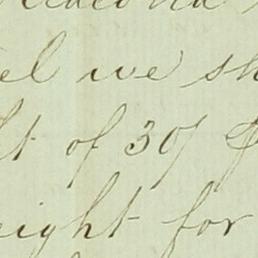 el we sh
t of 30/
eight for